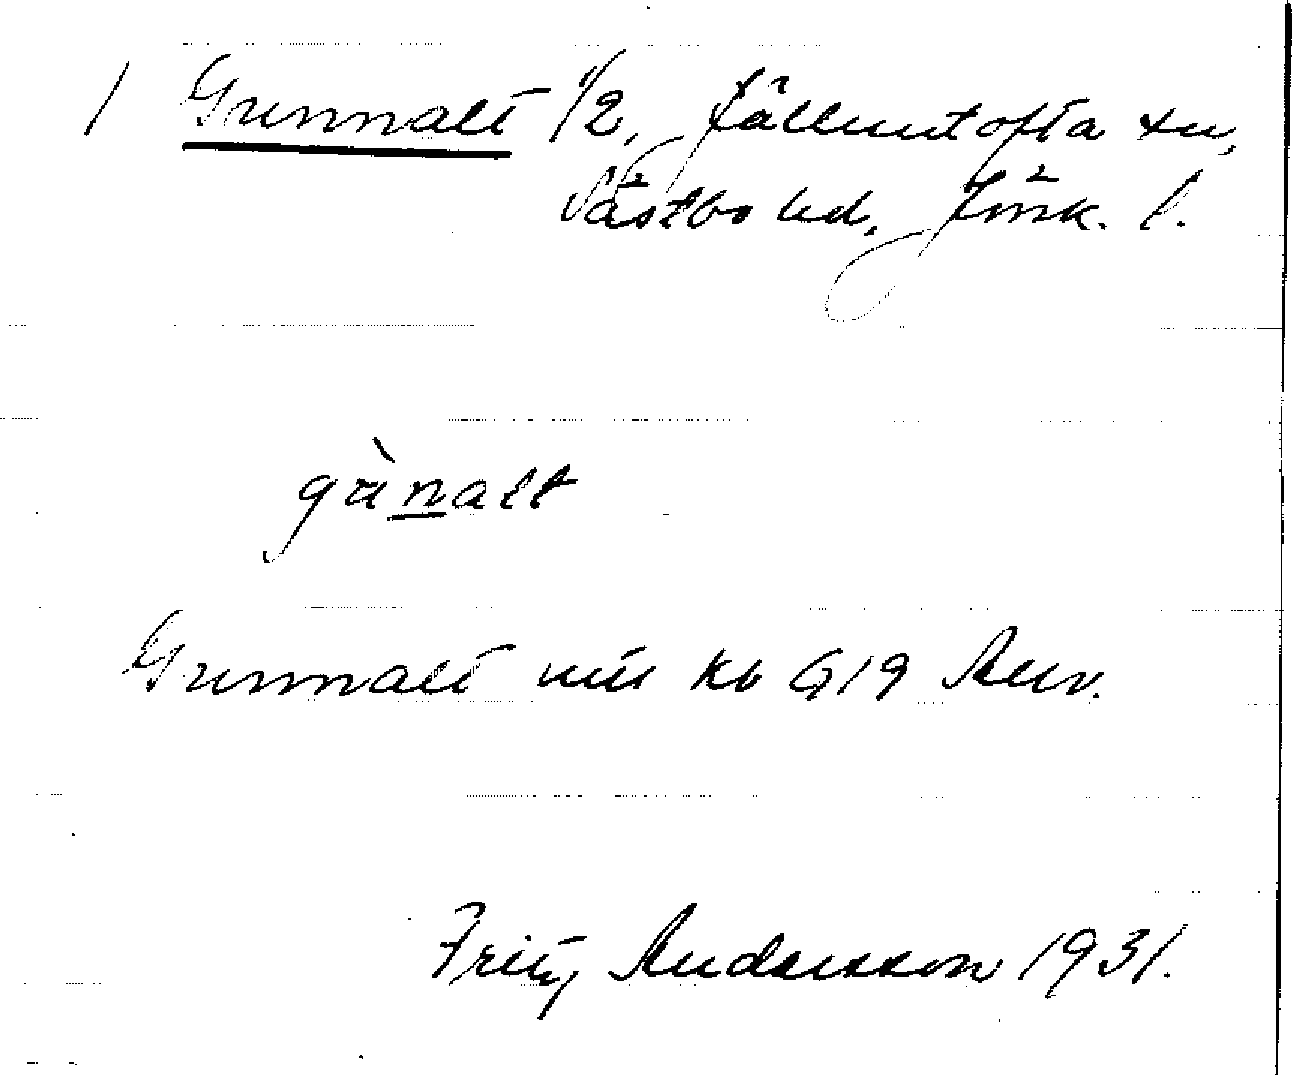 1 Gunnalt 1/2, Jälluntofta sn,
Västbo hd, Jönk. l.
gùnalt
Gunnalt mtl Kb 619
Fritz Andersson 1931.